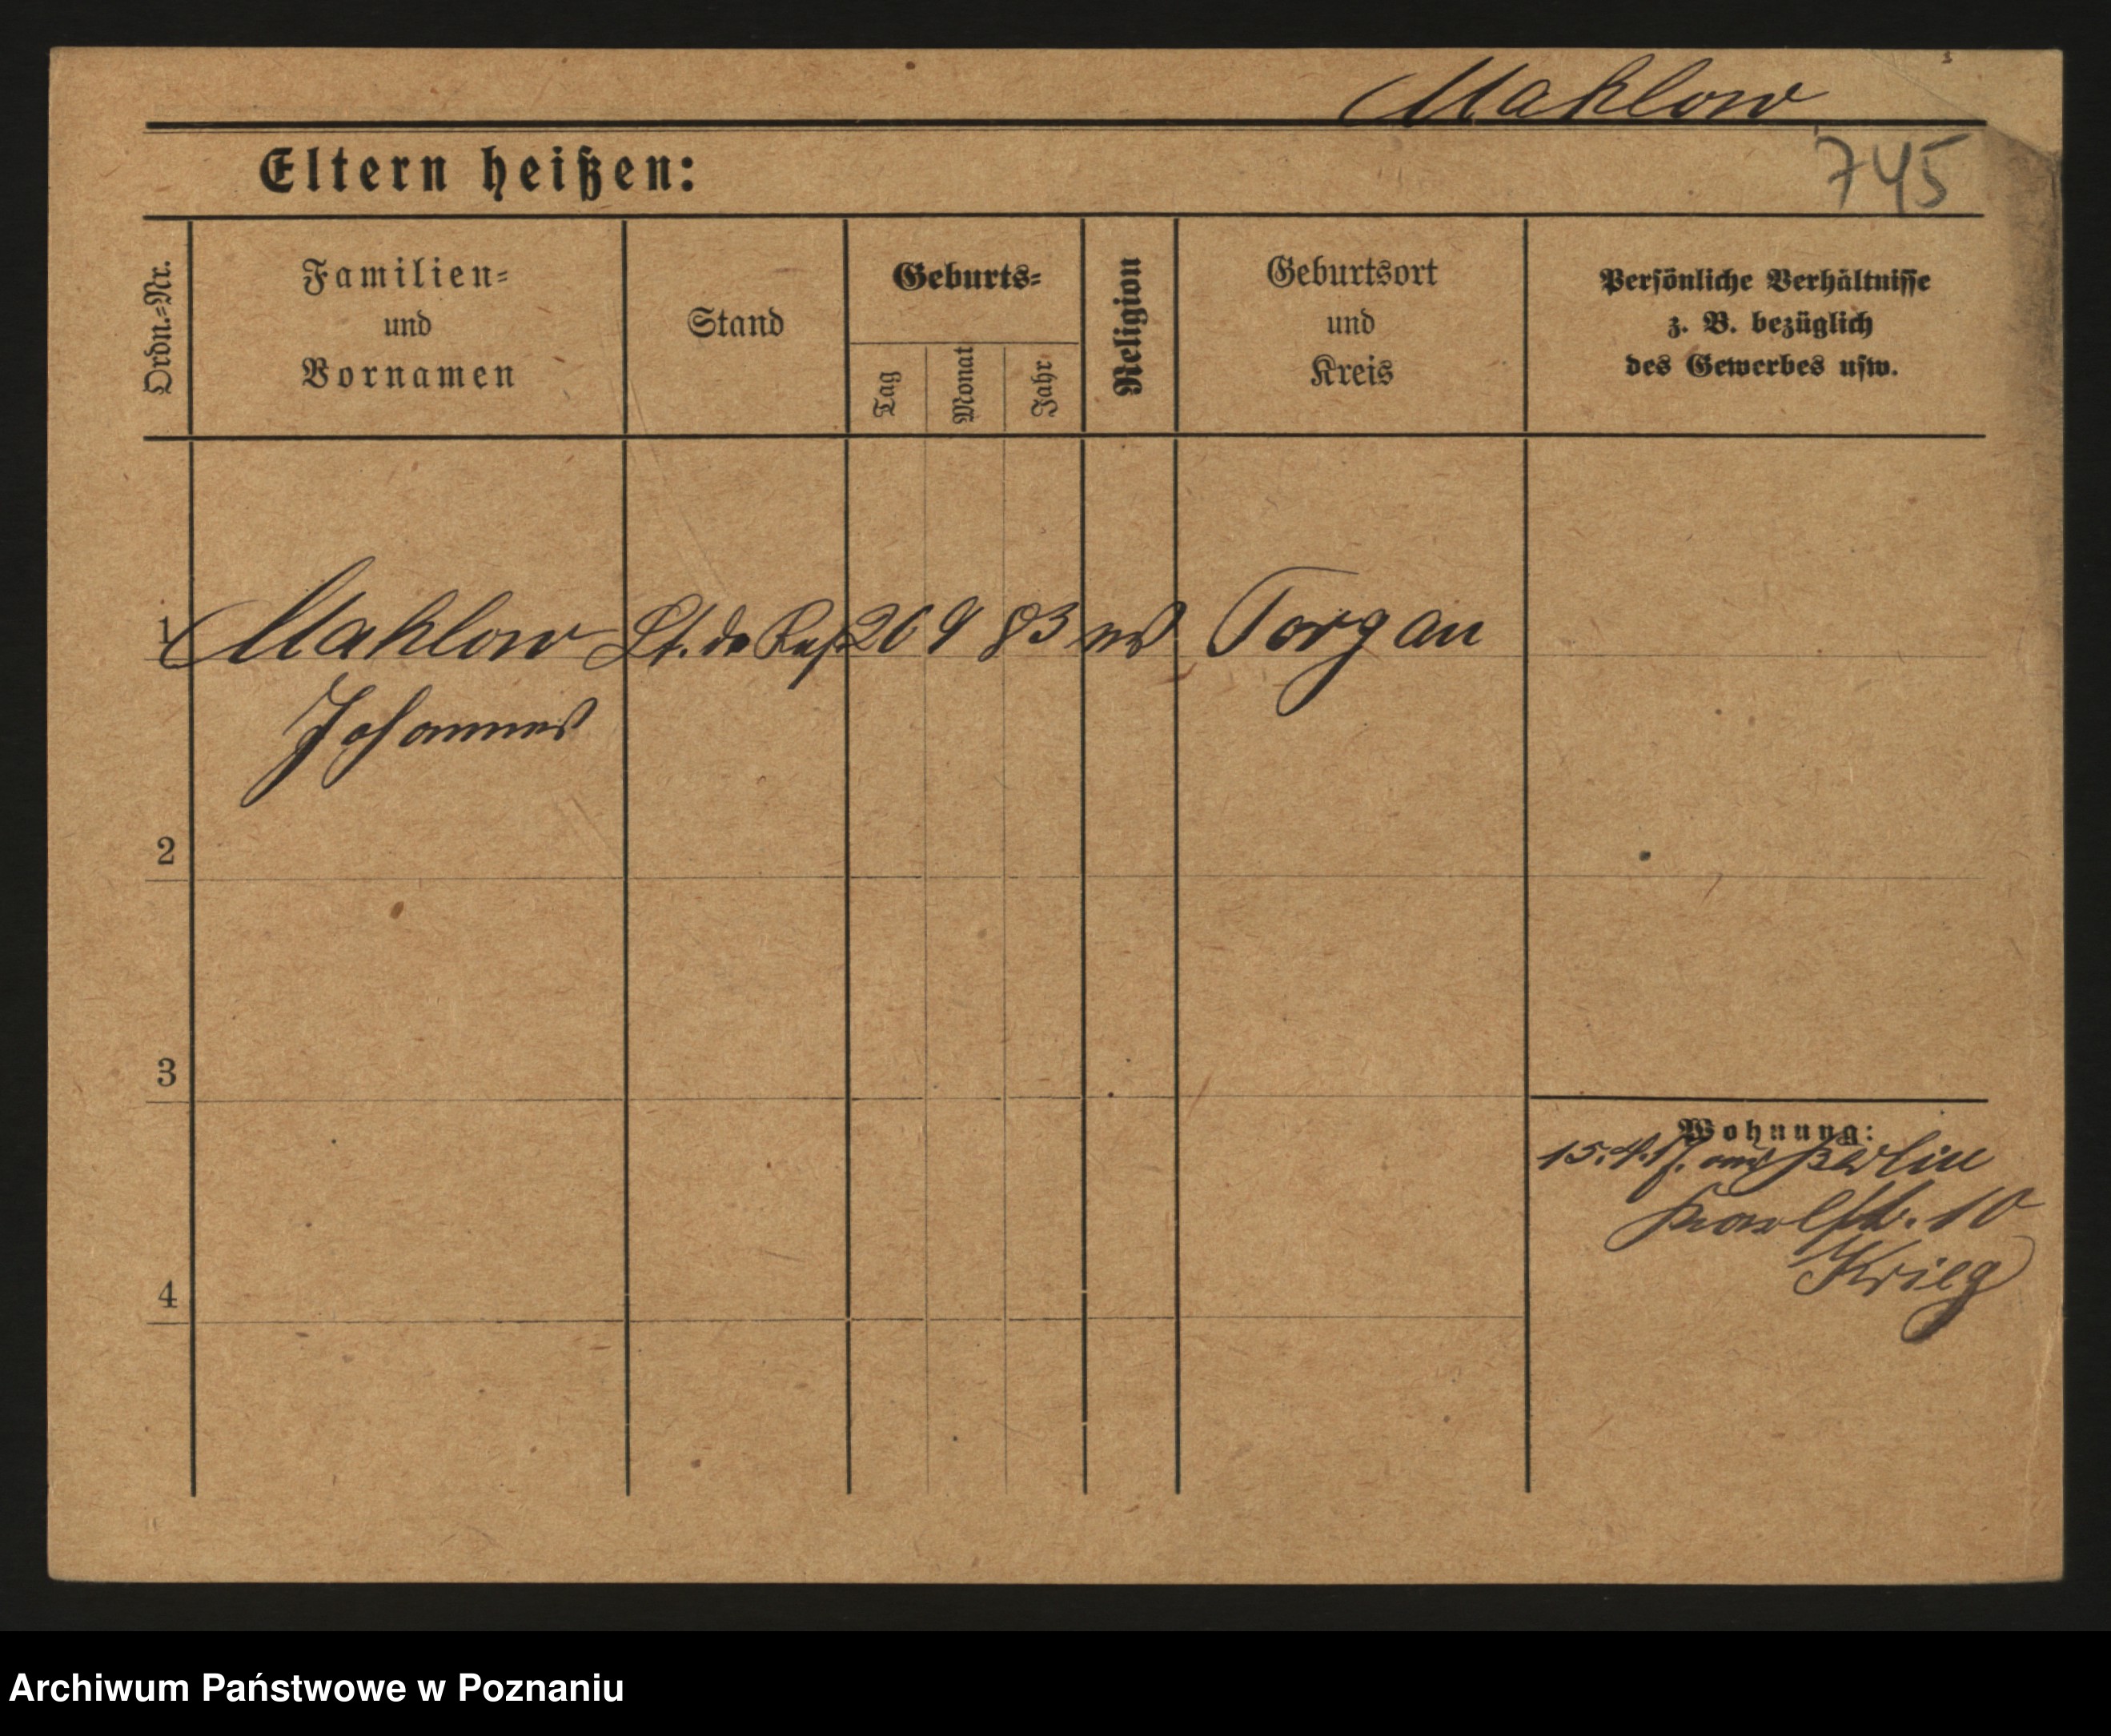 Mahlow
Eltern heißen:
745
Ordn.=Nr.
Familien=
und
Vornamen
Stand
Geburts=
Tag
Monat
Jahr
Religion
Geburtsort
und
Kreis
Persönliche Verhältnisse
z. B. bezüglich
des Gewerbes usw.
1 Mahlow Lt. d. Res 20 9 83 Torgau
Johannes
2
3
4
Wohnung:
15.4.17. aus Berlin
10
Krieg
Archiwum Państwowe w Poznaniu